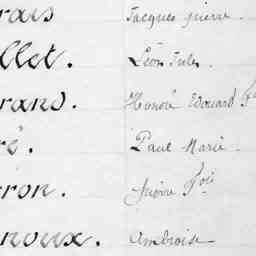 rais Jacques pierre.
llet. Léon Jules.
rand. Honoré Edouard
ré. Paul Marie.
rron. Pierre Fois
noux. Ambroise